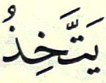 يَتَّخِذُ